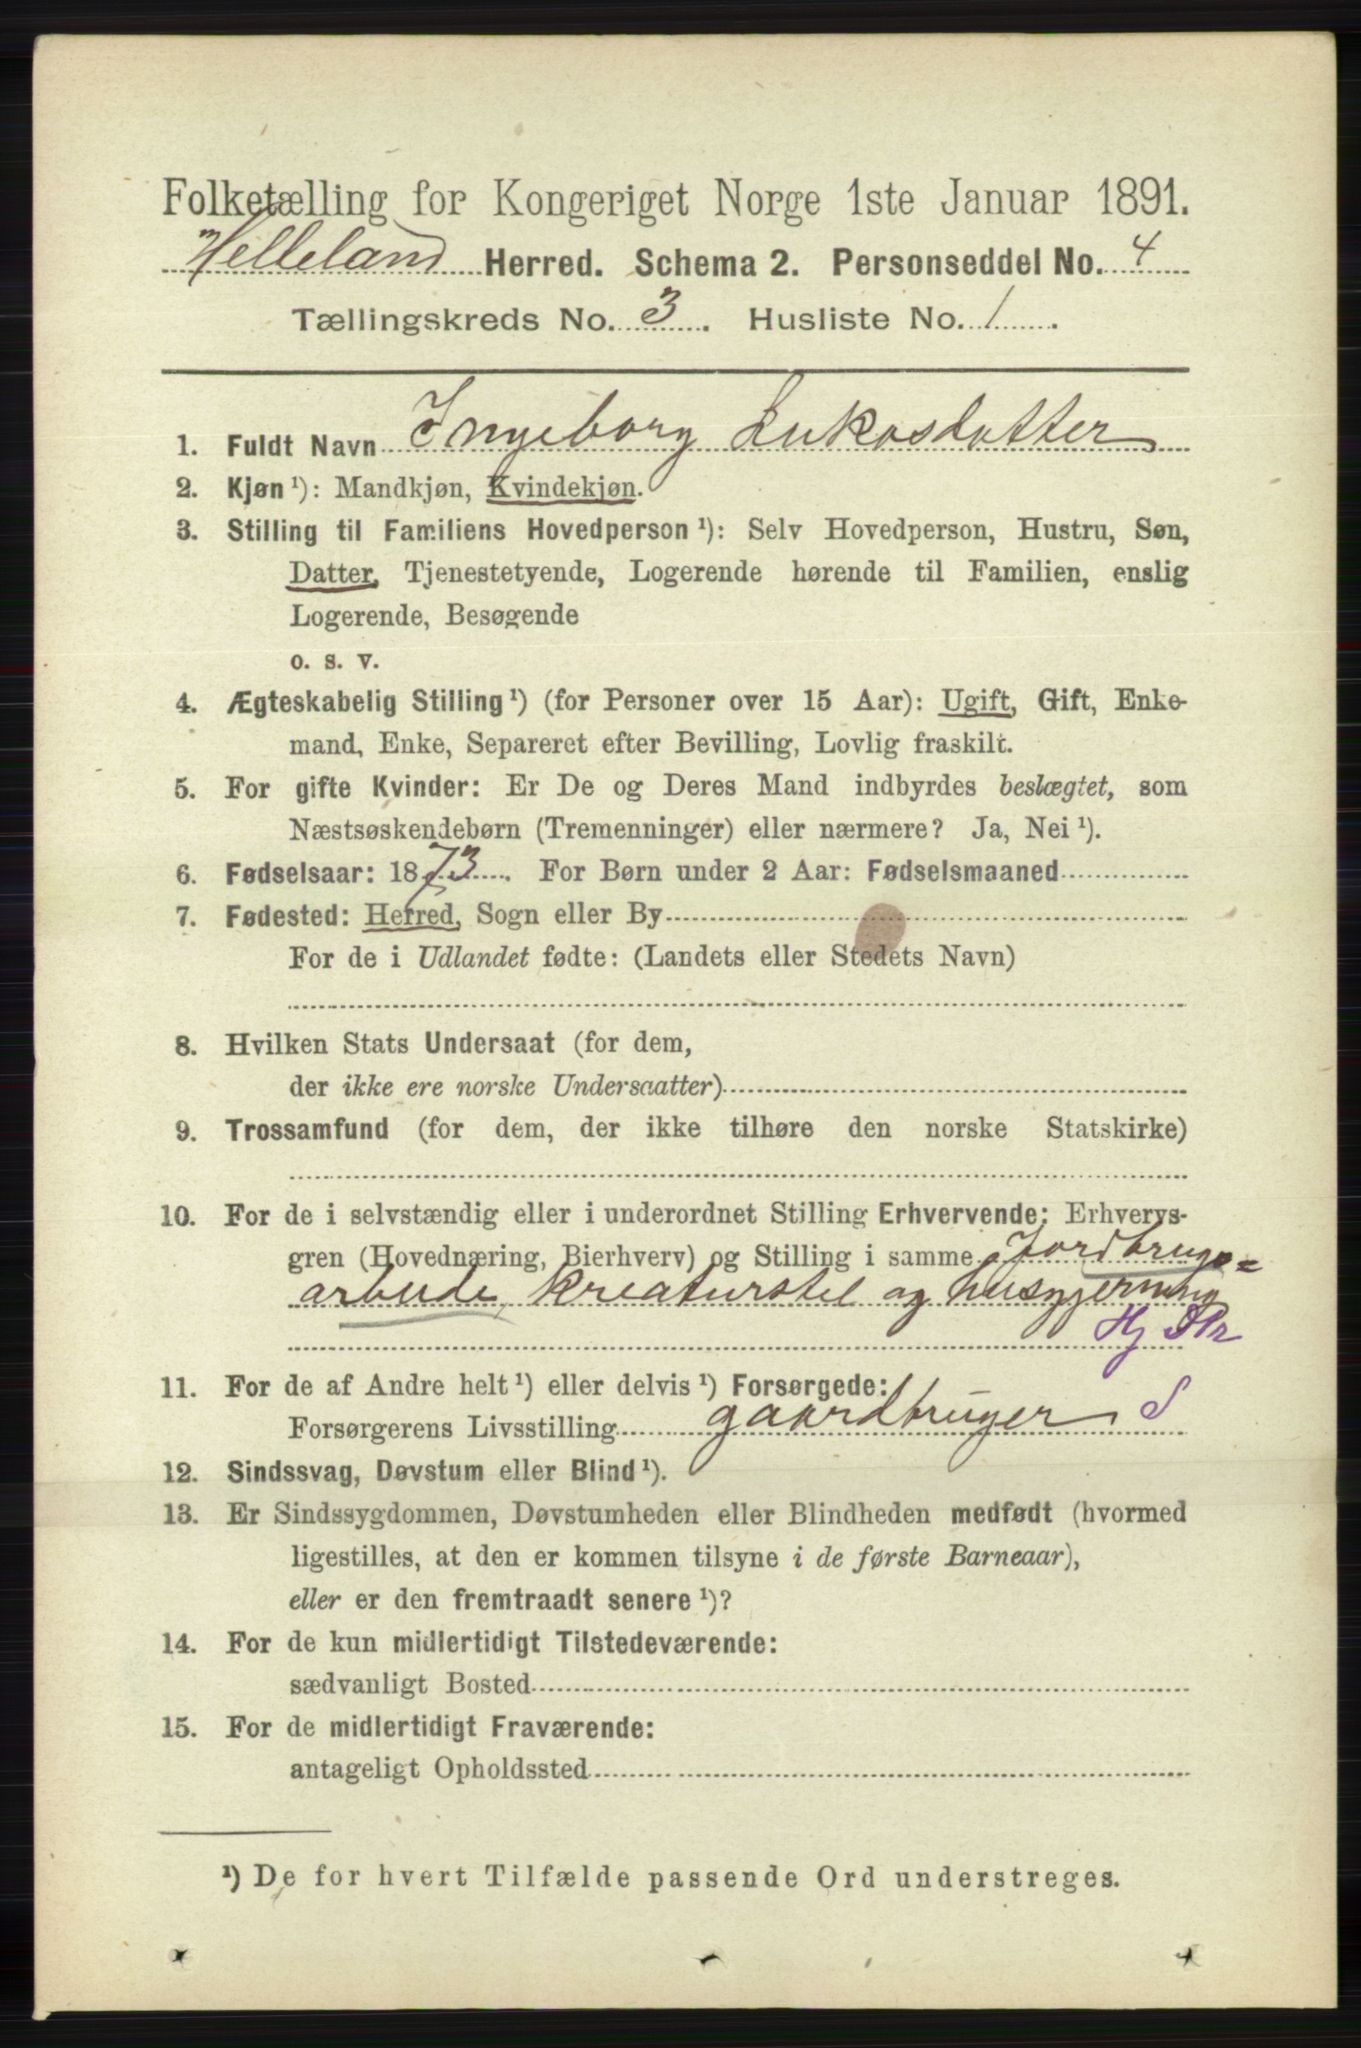 Folketælling for Kongeriget Norge 1ste Januar 1891.
Helleland Herred. Schema 2. Personseddel No. 4
Tællingskreds No. 3. Husliste No. 1.
1. Fuldt Navn Ingeborg Lukasdatter
2. Kjøn ¹): Mandkjøn, Kvindekjøn.
3. Stilling til Familiens Hovedperson ¹): Selv Hovedperson, Hustru, Søn,
Datter, Tjenestetyende, Logerende hørende til Familien, enslig
Logerende, Besøgende
o. s. v.
4. Ægteskabelig Stilling ¹) (for Personer over 15 Aar): Ugift, Gift, Enke-
mand, Enke, Separeret efter Bevilling, Lovlig fraskilt.
5. For gifte Kvinder: Er De og Deres Mand indbyrdes beslægtet, som
Næstsøskendebørn (Tremenninger) eller nærmere? Ja, Nei ¹).
6. Fødselsaar: 1873. For Børn under 2 Aar: Fødselsmaaned
7. Fødested: Herred, Sogn eller By
For de i Udlandet fødte: (Landets eller Stedets Navn)
8. Hvilken Stats Undersaat (for dem,
der ikke ere norske Undersaatter)
9. Trossamfund (for dem, der ikke tilhøre den norske Statskirke)
10. For de i selvstændig eller i underordnet Stilling Erhvervende: Erhvervs-
gren (Hovednæring, Bierhverv) og Stilling i samme Jordbrugs=
arbeide, kreaturstel og husgjerning
Hj
11. For de af Andre helt ¹) eller delvis ¹) Forsørgede:
Forsørgerens Livsstilling gaardbruger S
12. Sindssvag, Døvstum eller Blind ¹).
13. Er Sindssygdommen, Døvstumheden eller Blindheden medfødt (hvormed
ligestilles, at den er kommen tilsyne i de første Barneaar),
eller er den fremtraadt senere ¹)?
14. For de kun midlertidigt Tilstedeværende:
sædvanligt Bosted
15. For de midlertidigt Fraværende:
antageligt Opholdssted
¹) De for hvert Tilfælde passende Ord understreges.